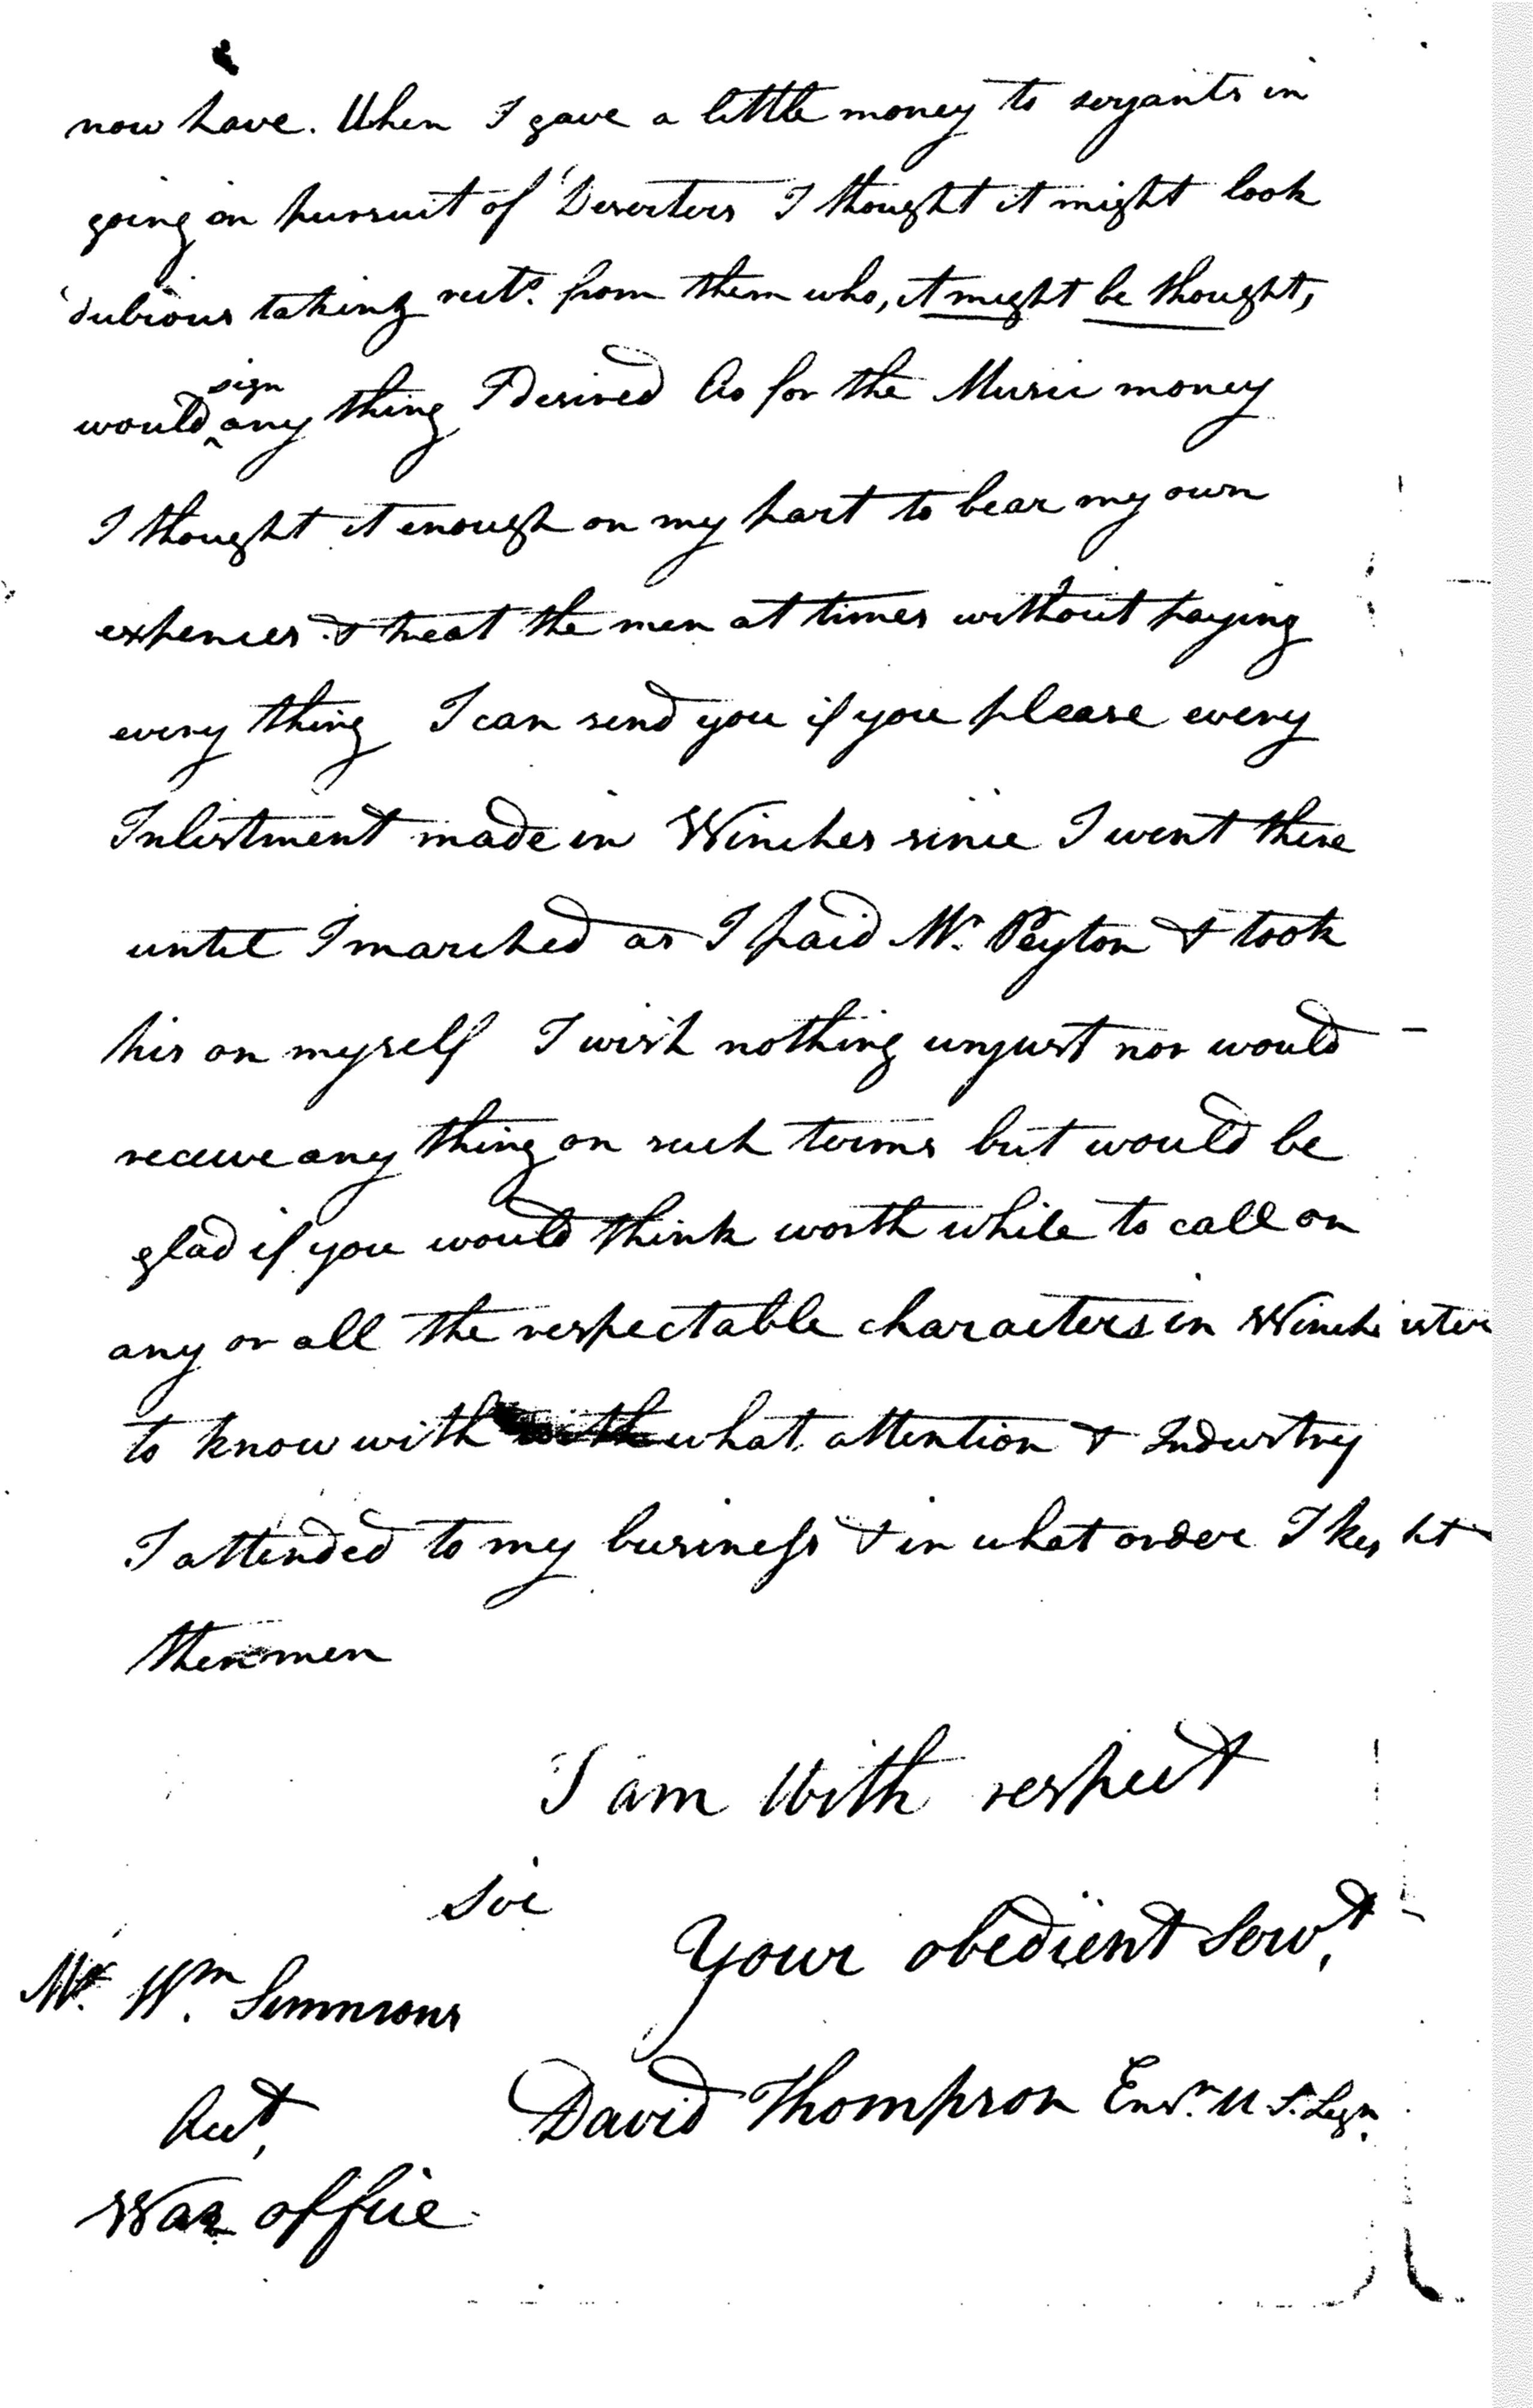 now have. When I gave a little money to serjants in
going in pursuit of Deserters I thought it might look
dubious taking rects. from them who, it might be thought,
would sign any thing I desired As for the Music money
I thought it enough on my part to bear my own
expences & treat the men at times without paying
every thing I can send you if you please every
Inlistment made in Winches since I went there
until I marched as I paid Mr. Peyton & took
his on myself I wish nothing unjust nor would
receive any thing on such terms but would be
glad if you would think worth while to call on
any or all the respectable characters in Winchester
to know with what attention & Industry
I attended to my business & in what order I kept
the men
I am With respect
Sir
Your obedient Servt,
Mr. Wm. Simmons
David Thompson Ensn. U S. Legn.
Acct,
War office